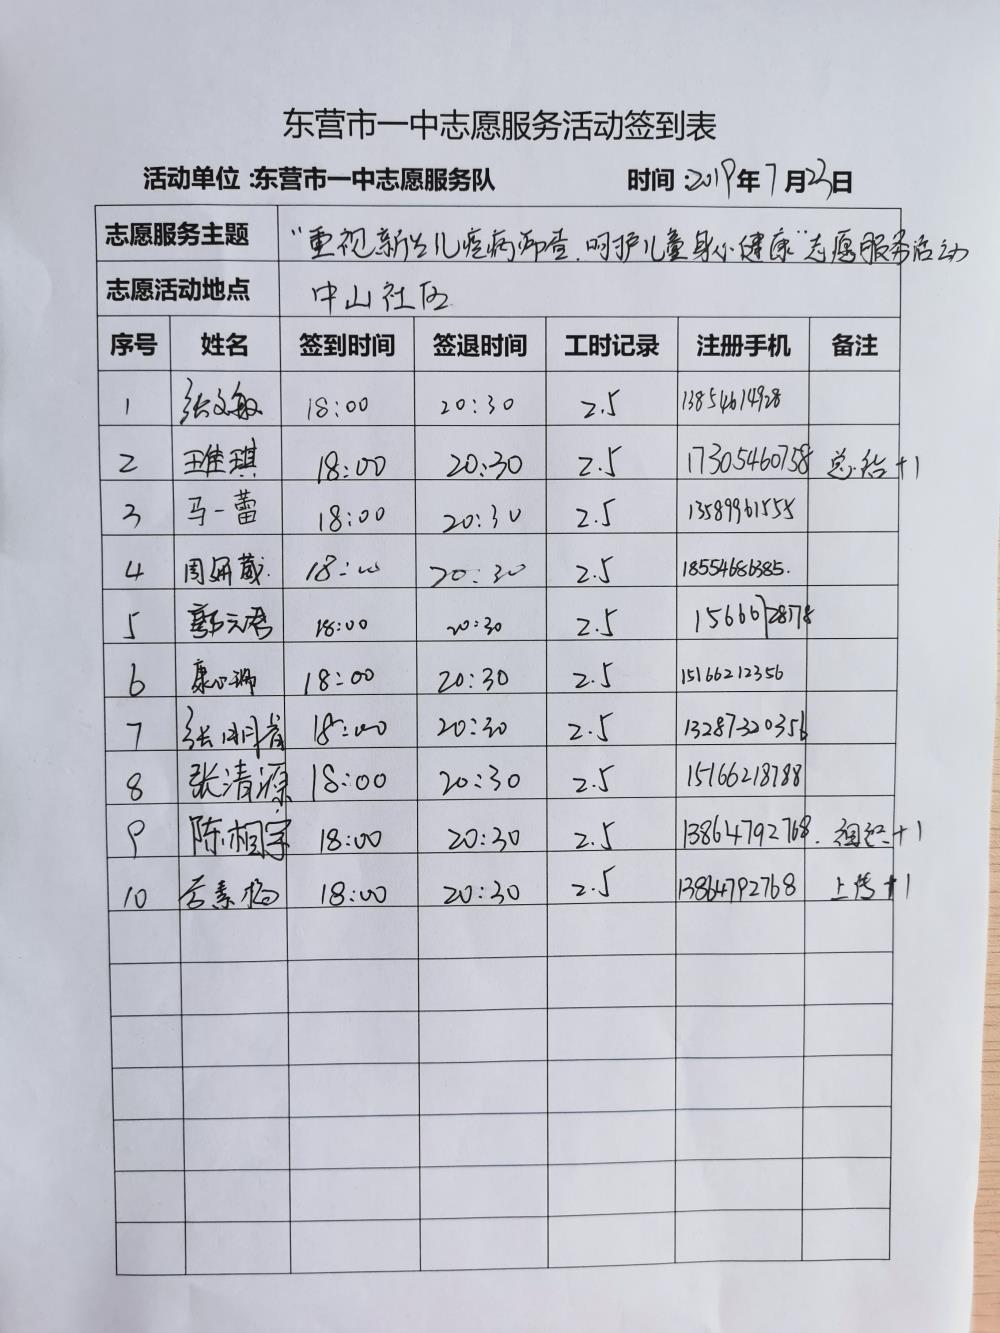 东营市一中志愿服务活动签到表
活动单位:东营市一中志愿服务队 时间:2019年7月23日
志愿服务主题 "重视新生儿疾病筛查,呵护儿童身心健康"志愿服务活动
志愿活动地点 中山社区
序号 姓名 签到时间 签退时间 工时记录 注册手机 备注
1 张文敏 18:00 20:30 2.5 13854614928
2 王佳琪 18:00 20:30 2.5 17305460758 总结+1
3 马一蕾 18:00 20:30 2.5 13589961555
4 周妍葳 18:00 20:30 2.5 18554686385.
5 郭云君 18:00 20:30 2.5 15666728178
6 康心瑜 18:00 20:30 2.5 15166212356
7 张 18:00 20:30 2.5 13287320356
8 张清源 18:00 20:30 2.5 15166218788
9 陈相宇 18:00 20:30 2.5 13864792768. +1
10 苦素梅 18:00 20:30 2.5 13864792768 上传+1